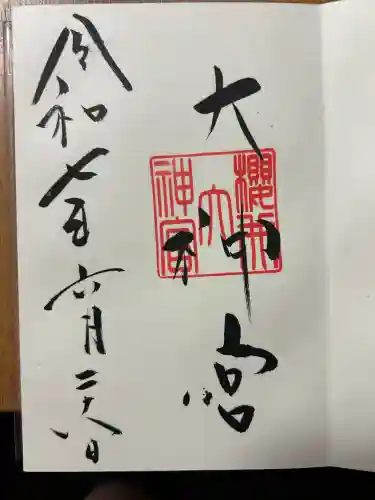 大神宮
櫻井
大
神宮
令和七年
六月二十八日